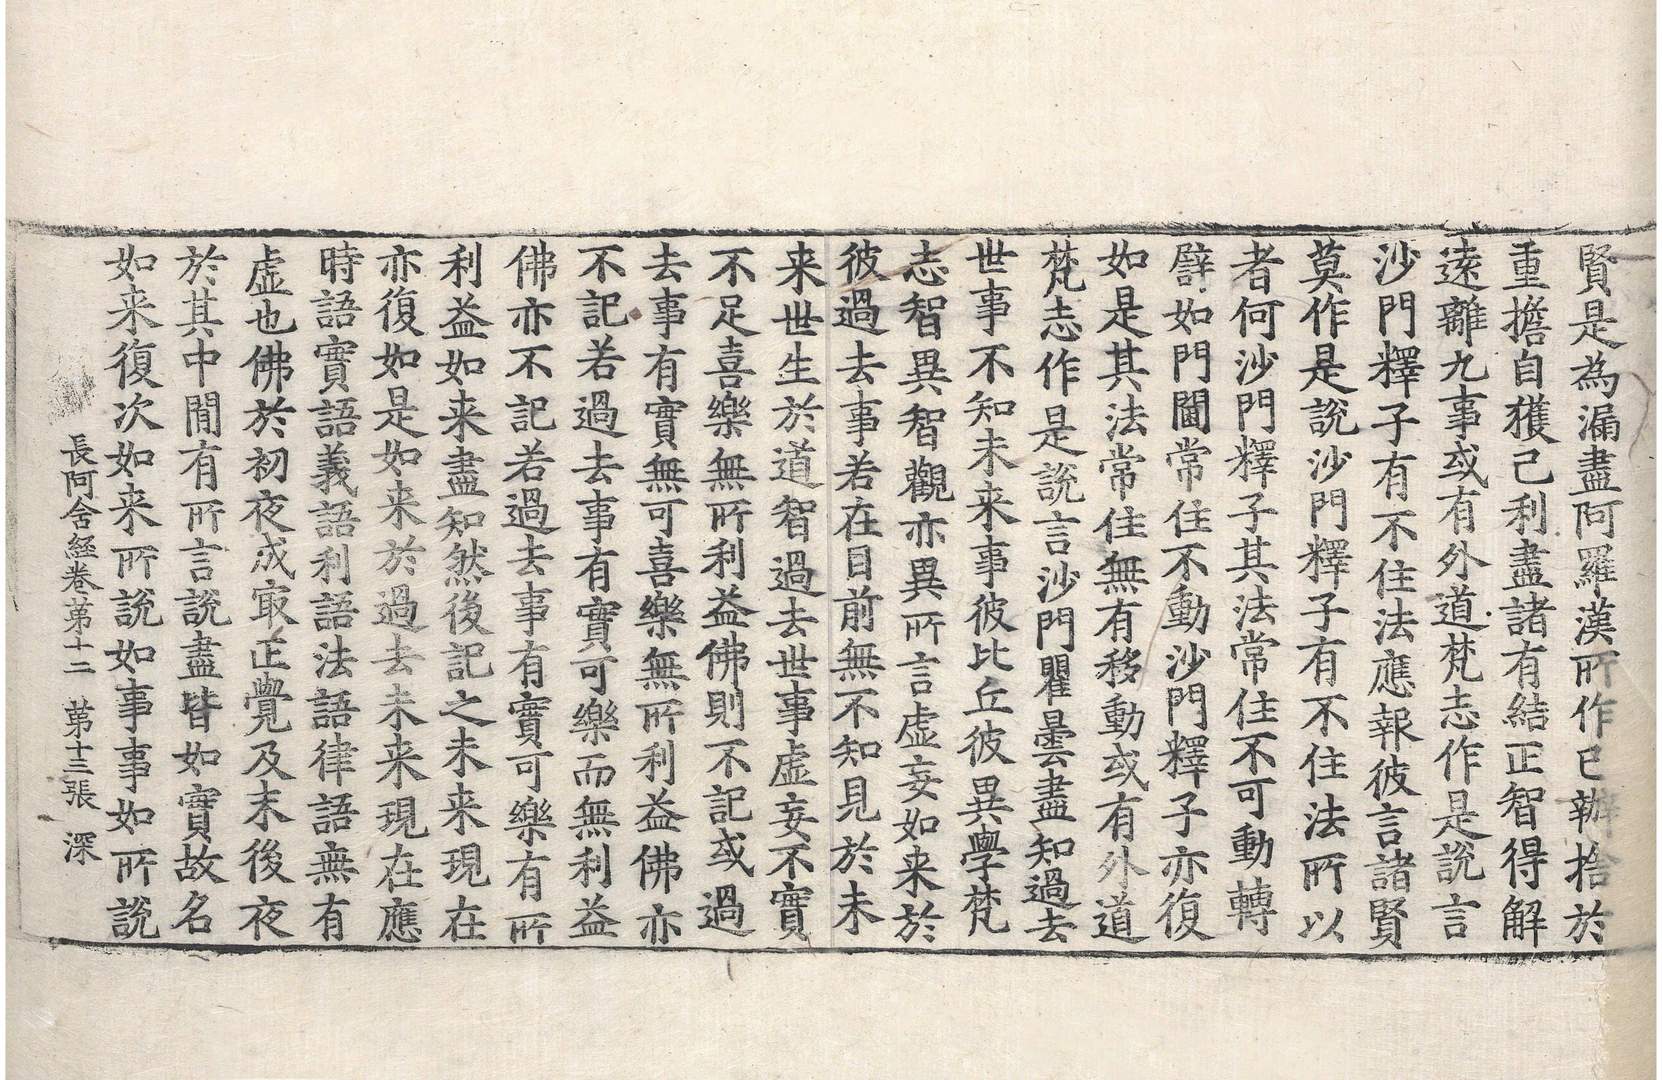 賢是為漏盡阿羅漢所作已辦捨於
重擔自獲己利盡諸有結正智得解
遠離九事或有外道梵志作是說言
沙門釋子有不住法應報彼言諸賢
莫作是說沙門釋子有不住法所以
者何沙門釋子其法常住不可動轉
譬如門閫常住不動沙門釋子亦復
如是其法常住無有移動或有外道
梵志作是說言沙門瞿曇盡知過去
世事不知未来事彼比丘彼異學梵
志智異智觀亦異所言虛妄如来於
彼過去事若在目前無不知見於未
来世生於道智過去世事虛妄不實
不足喜樂無所利益佛則不記或過
去事有實無可喜樂無所利益佛亦
不記若過去事有實可樂而無利益
佛亦不記若過去事有實可樂有所
利益如来盡知然後記之未来現在
亦復如是如来於過去未来現在應
時語實語義語利語法語律語無有
虛也佛於初夜成冣正覺及末後夜
於其中閒有所言說盡皆如實故名
如来復次如来所說如事事如所說
長阿含經卷第十二 第十三張 深